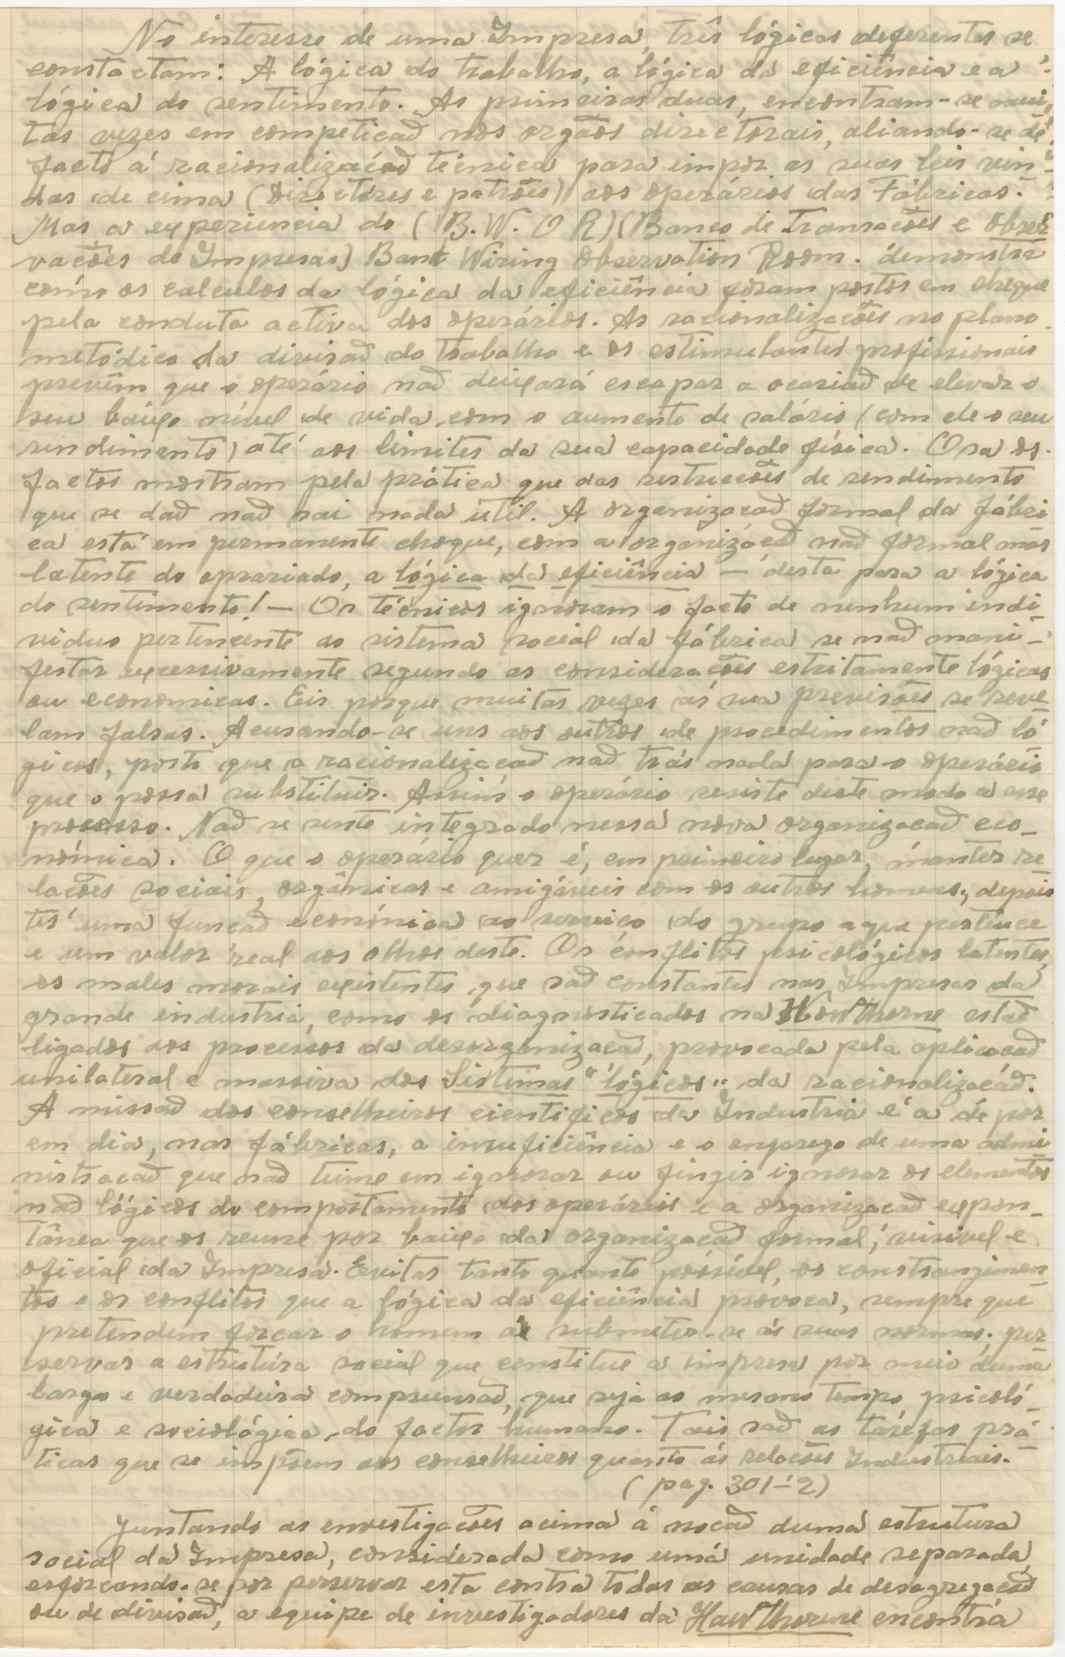 No interesse de uma Impresa, três lógicas deferentes se
constactam: A lógica do trabalho, a lógica da eficiência e a
lógica do sentimento. As primeiras duas, encontram-se mui-
tas vezes em competicaõ nos orgãos directorais, aliando-se de
facto á racionalizaçaõ técnica para impor as suas leis vin-
das de cima (Directores e patrões) aos operários das Fábricas.
Mas a experiencia do (B. W. O R) (Banco de Transacões e Obser
vacões de Impresas) Bank Wiring Observation Room. demonstra
como os calculos da lógica da eficiência foram postos em cheque
pela conduta activa dos operários. As racionalizacões no plano
metódico da divisaõ do trabalho e os estimulantes profissionais
prevêm que o operário naõ deixará escapar a ocasiaõ de elevar o
seu baixo nível de vida, com o aumento de salário (com ele o seu
rendimento) até aos limites da sua capacidade física. Ora os
factos mostram pela prática que das restriccões de rendimento
que se daõ naõ sai nada útil. A organizacaõ formal da fábri
ca está em permanente choque, com a organizácaõ naõ formal mas
latente do oprariado, a lógica da eficiência — desta para a lógica
do sentimento! — Os técnicos ignoram o facto de nenhum indi-
viduo pertencente ao sistema social da fábrica se naõ mani-
festar excessivamente segundo as consideracões estritamente lógicas
ou economicas. Eis porque muitas vezes as sua previsões se reve
lam falsas. Acusando-se uns aos outros de procedimentos naõ ló
gicos, posto que a racionalizacaõ naõ trás nada para o operário
que o possa substituir. Assim o operário resiste deste modo a esse
processo. Naõ se sente integrado nessa nova organizacaõ eco-
nómica. O que o operário quer é, em primeiro lugar, manter re
lacões sociais, orgânicas e amigáveis com os outros homens, depois
ter uma funcaõ económica ao servico do grupo a que pertence
e um valor real aos olhos deste. Os conflitos psicológicos latentes,
os males morais existentes que saõ constantes nas Impresas da
grande industria, como os diagnosticados na Hawthorne estaõ
ligados aos processos da desorganizacaõ, provocada pela aplicacaõ
unilateral e massiva dos Sistemas "lógicos" da racionalizacaõ.
A missaõ dos conselheiros cientificos da Industria é a de por
em dia, nas fábricas, a insuficiência e o emprego de uma admi
nistracaõ que naõ teime em ignorar ou fingir ignorar os elementos
naõ lógicos do comportamento dos operários e a organizacaõ expon-
tânea que os reune por baixo da organizacaõ formal, visivel e
oficial da Impresa. Evitar tanto quanto possível, os constrangimen-
tos e os conflitos que a lógica da eficiência provoca, sempre que
pretendem forcar o homem a submeter-se ás suas normas; per
servar a estrutura social que constitue a impresa por meio duma
larga e verdadeira compreensaõ, que seja ao mesmo tempo, psicoló-
gica e sociológica, do factor humano. Tais saõ as tarefas prá-
ticas que se impõem aos conselheiros quanto ás relacões Industriais.
(pag. 301-2)
Juntando as envestigacões acima á nocaõ duma estrutura
social da Impresa, considerada como uma unidade separada,
esforcando-se por perservar esta contra todas as causas de desagregacaõ
ou de divisaõ, a equipe de investigadores da Hawthorne encontra